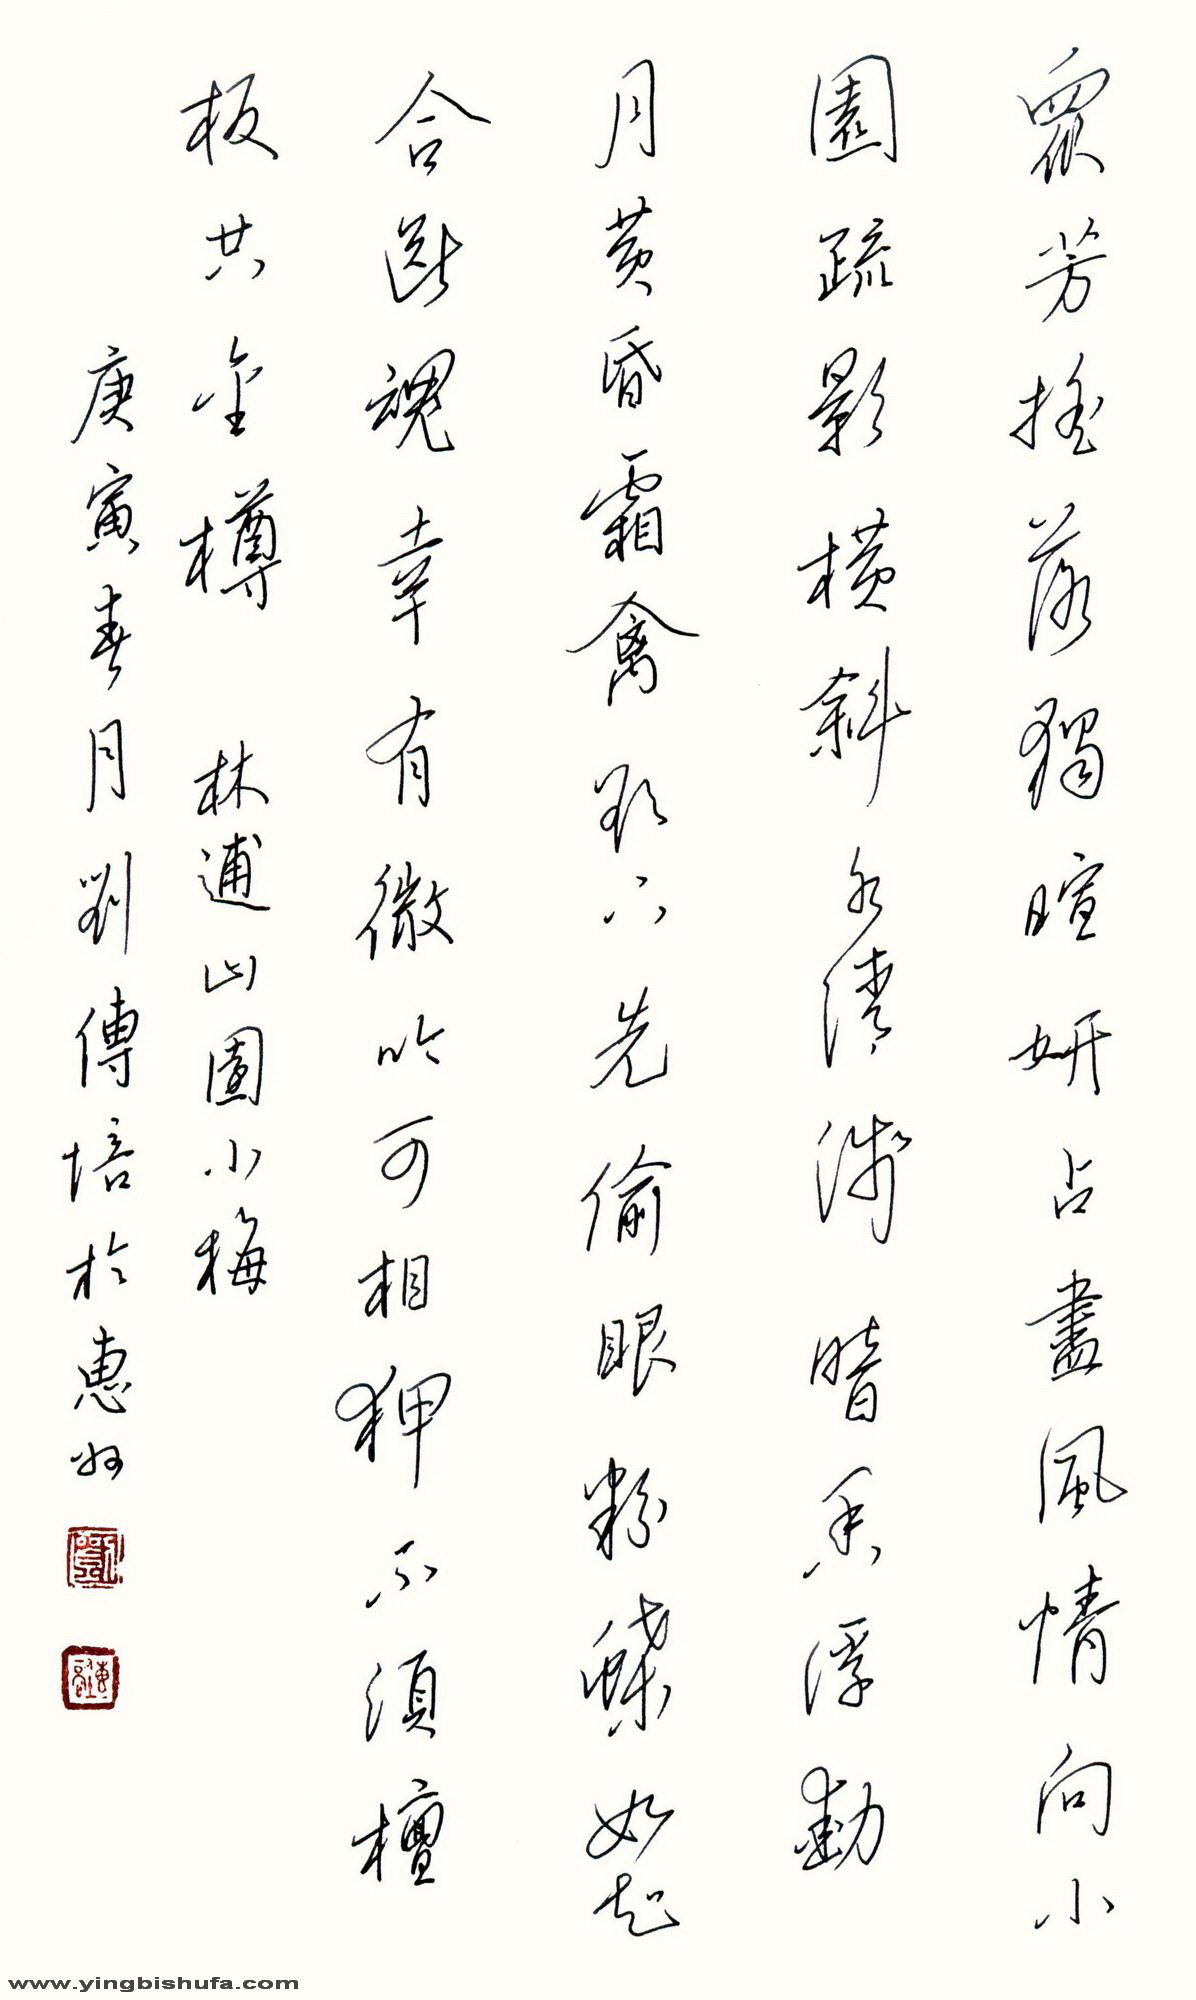 眾芳搖落獨暄妍占盡風情向小
園疏影橫斜水清淺暗香浮動
月黃昏霜禽欲下先偷眼粉蝶如知
合斷魂幸有微吟可相狎不須檀
板共金樽 林逋山園小梅
庚寅春月劉傳培於惠州
www.yingbishufa.com